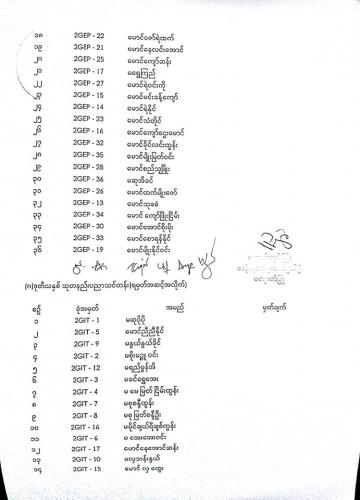 ၁၈ 2GEP - 22 မောင်ဇော်ရဲထက်
၁၉ 2GEP - 21 မောင်နေလင်းအောင်
၂၀ 2GEP - 25 မောင်ကျော်ဆန်း
၂၁ 2GEP - 17 မရွှေကြည်
၂၂ 2GEP - 27 မောင်ရဲဝင်းကို
၂၃ 2GEP - 15 မောင်မင်းခန့်ကျော်
၂၄ 2GEP - 14 မောင်ရဲနိုင်
၂၅ 2GEP - 23 မောင်သံတိုင်
၂၆ 2GEP - 16 မောင်ကျော်ဌေးမောင်
၂၇ 2GEP - 32 မောင်ခိုင်လင်းထွန်း
၂၈ 2GEP - 35 မောင်မျိုးမြတ်ဝင်း
၂၉ 2GEP - 28 မောင်စည်သူဖြိုး
၃၀ 2GEP - 36 မဆုအိခင်
၃၁ 2GEP - 26 မောင်ထက်မျိုးဇော်
၃၂ 2GEP - 13 မောင်သုခစံ
၃၃ 2GEP - 34 မောင် ကျော်ဖြိုးငြိမ်း
၃၄ 2GEP - 30 မောင်အောင်စိုးမိုး
၃၅ 2GEP - 33 မောင်စောရန်နိုင်
၃၆ 2GEP - 19 မောင်မျိုးနိုင်ဝင်း
(၈)ဒုတိယနှစ် သုတနည်းပညာသင်တန်း(ရမှတ်အဆင့်အလိုက်)
စဉ် ခုံအမှတ် အမည် မှတ်ချက်
၁ 2GIT - 1 မဆုပိုပို
၂ 2GIT - 5 မောင်ညီညီနိုင်
၃ 2GIT - 9 မနွယ်နွယ်ခိုင်
၄ 2GIT - 2 မစိုးမဥ္ဇူ ဝင်း
၅ 2GIT - 12 မရည်မွန်အိ
၆ 2GIT - 3 မခင်ရွှေအေး
၇ 2GIT - 4 မ မေ မြတ် ငြိမ်းထွန်း
၈ 2GIT - 7 မစုစန္ဒီထွန်း
၉ 2GIT - 8 မစု မြတ်စန္ဒီဦး
၁၀ 2GIT - 16 မမိုင်ချယ်ရီချစ်ထွန်း
၁၁ 2GIT - 6 မ အေးအေးဝင်း
၁၂ 2GIT - 17 မောင်နေအောင်ဆန်း
၁၃ 2GIT - 10 မလှသန်းနွယ်
၁၄ 2GIT - 15 မောင် လှ ထွေး